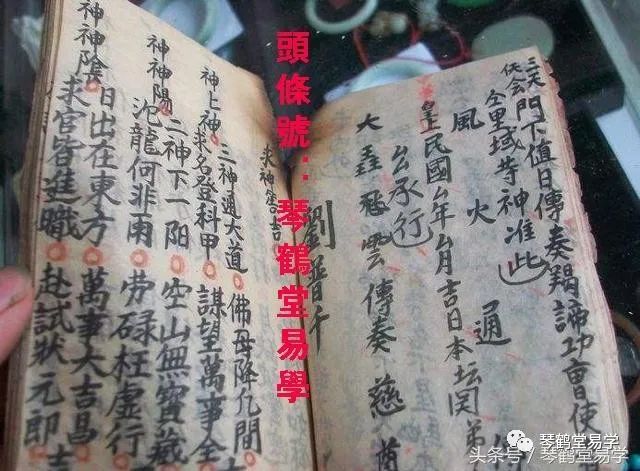 頭條號：琴鶴堂易學
三天門下值日傳奏羯諦功曹使
全里域等神准此
風火通
皇上民國厶年厶月吉日本坛闵弟
厶公承行
大聖飛雲傳奏慈尊
求神簽吉
三神通大道 佛母降凢間
神上神 求名登科甲 謀望萬事全
二神下一陽 空山無寶藏
神神陽 沈龍何非雨 劳碌枉虚行
日出在東方 萬事大吉昌
神神陰 求官皆進職 赴試状元郎
琴鹤堂易学
头条号/琴鹤堂易学